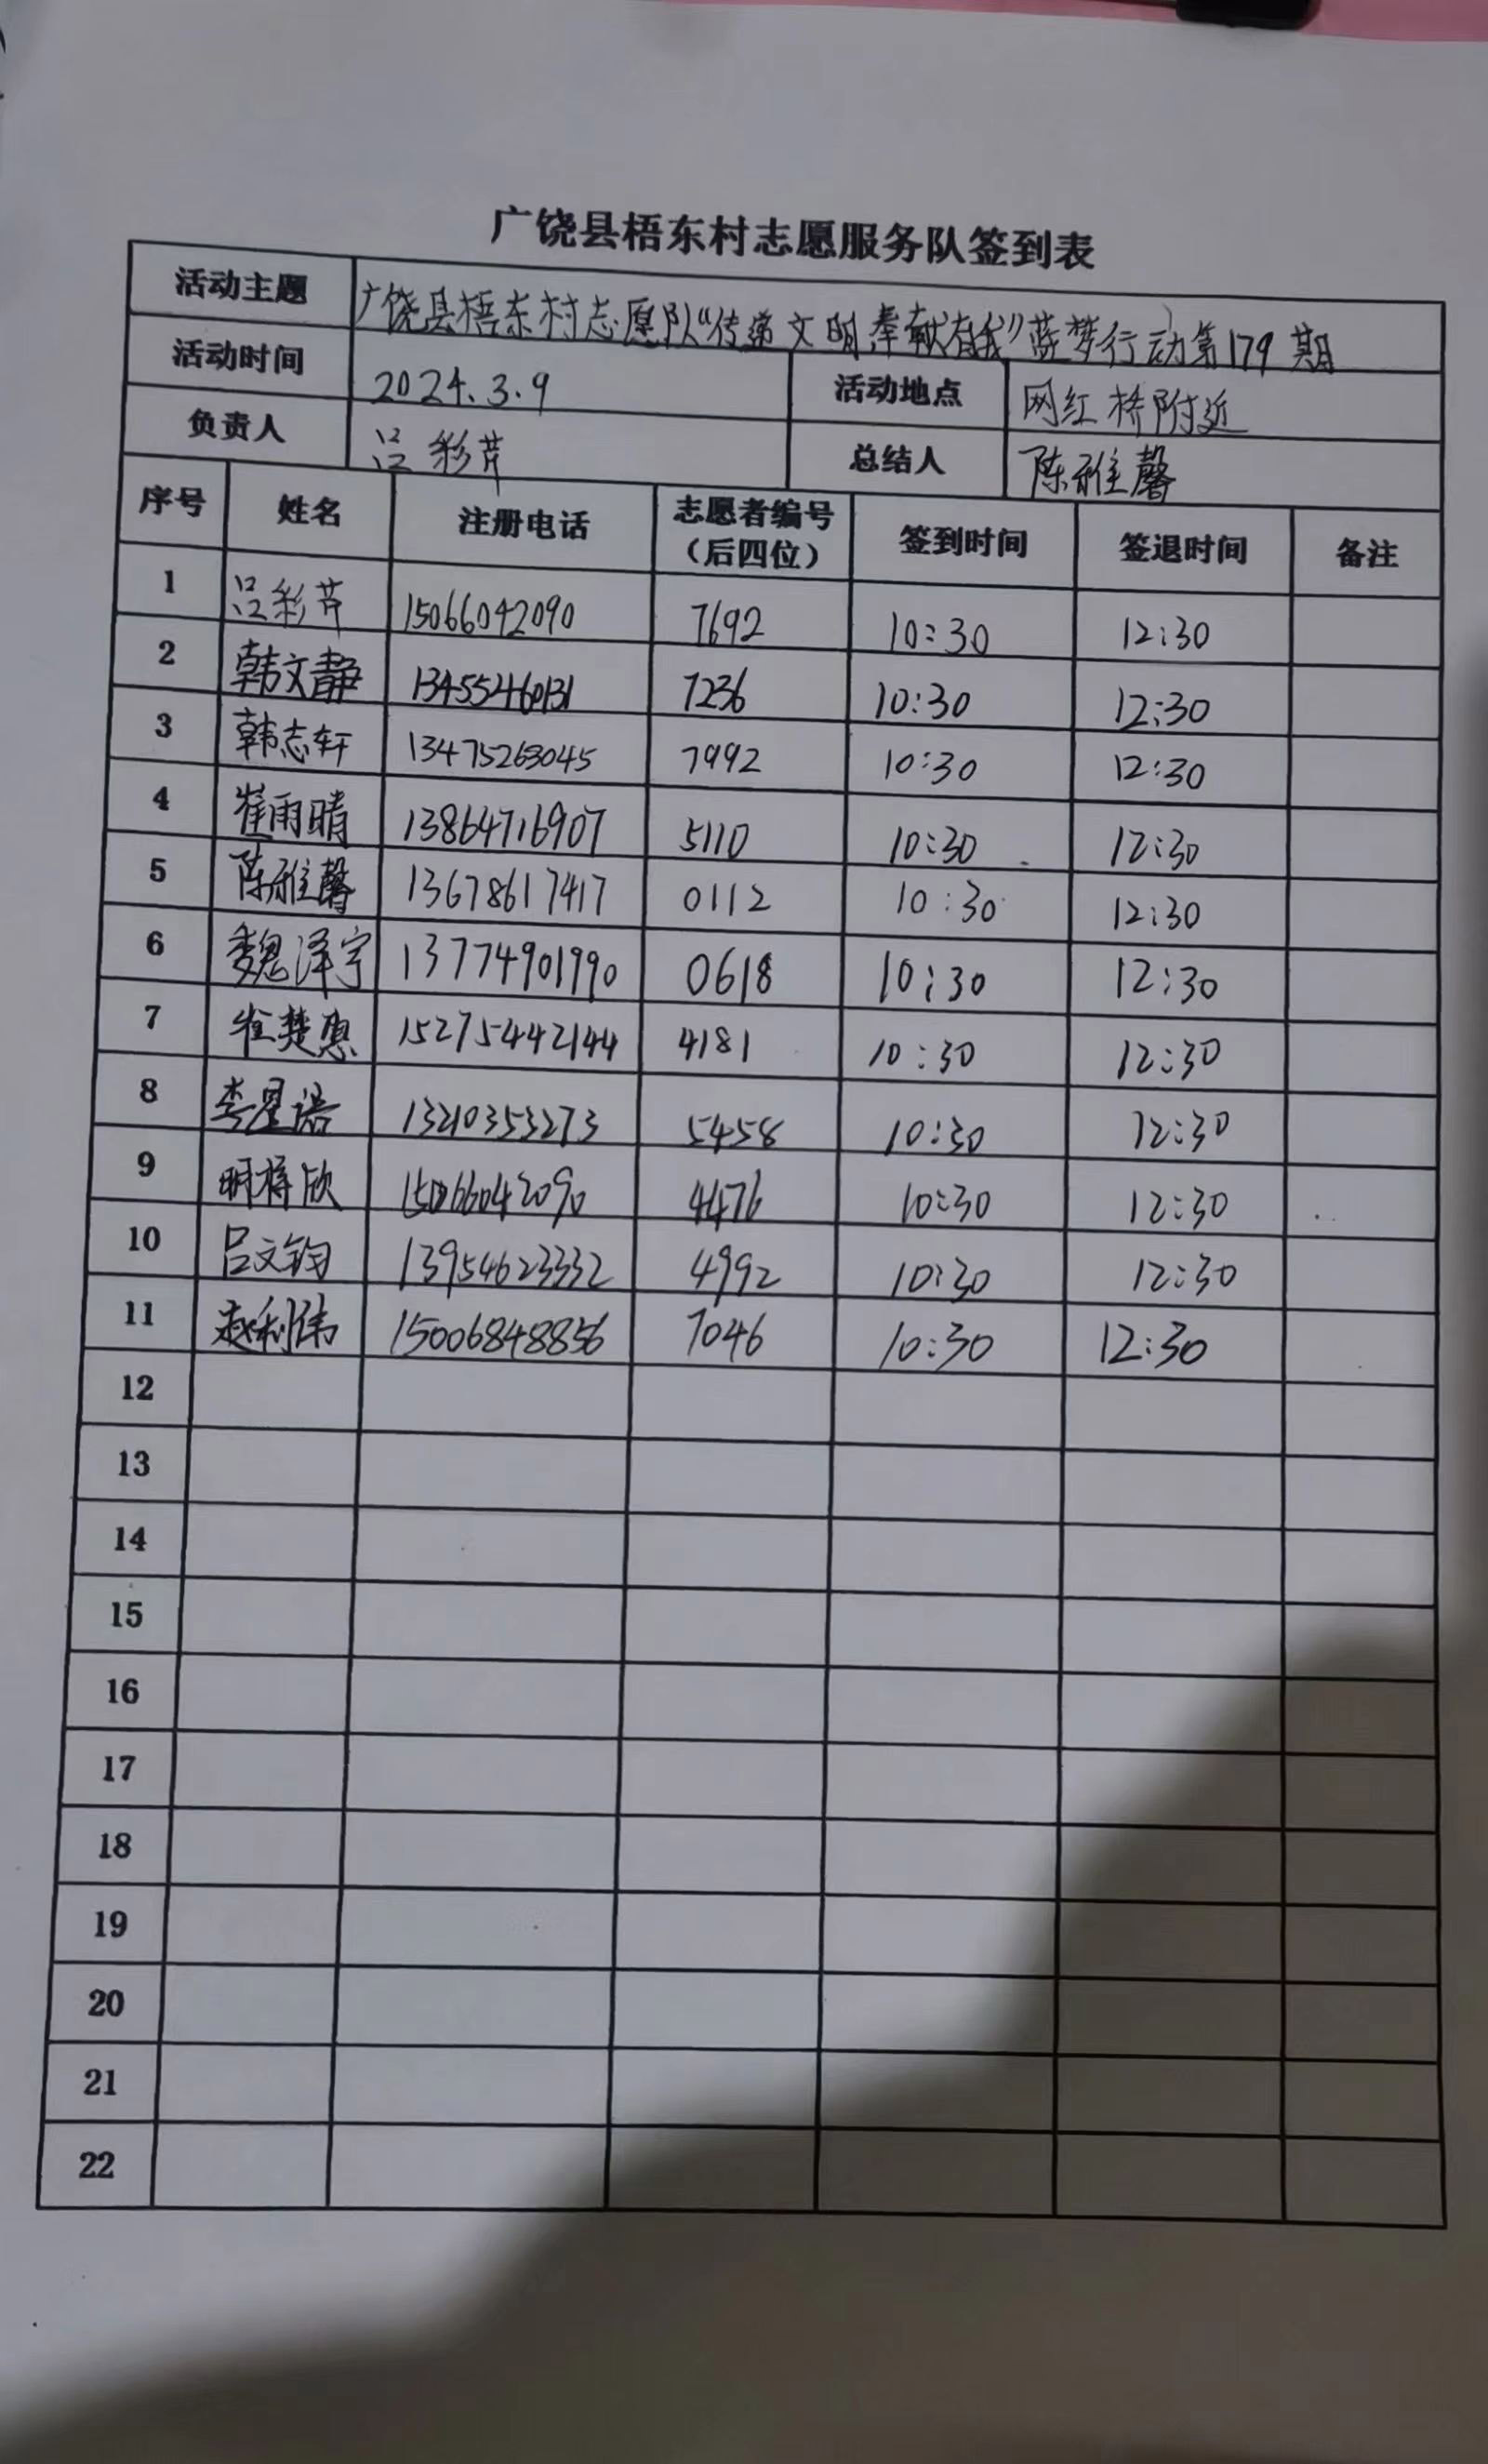 广饶县梧东村志愿服务队签到表
活动主题 广饶县梧东村志愿队“传递文明奉献有我”蓝梦行动第179期
活动时间 2024.3.9 活动地点 网红桥附近
负责人 吕彩芹 总结人 陈雅馨
序号 姓名 注册电话 志愿者编号（后四位） 签到时间 签退时间 备注
1 吕彩芹 15066042090 7692 10:30 12:30
2 韩文静 13455460131 7236 10:30 12:30
3 韩志轩 13475263045 7992 10:30 12:30
4 崔雨晴 13864716907 5110 10:30 12:30
5 陈雅馨 13678617417 0112 10:30 12:30
6 魏泽宇 13774901990 0618 10:30 12:30
7 崔楚惠 15275442144 4181 10:30 12:30
8 李星诺 13210353273 5458 10:30 12:30
9 明梓欣 15066042090 4476 10:30 12:30
10 吕文钧 13954623332 4992 10:30 12:30
11 赵利伟 15006848856 7046 10:30 12:30
12
13
14
15
16
17
18
19
20
21
22